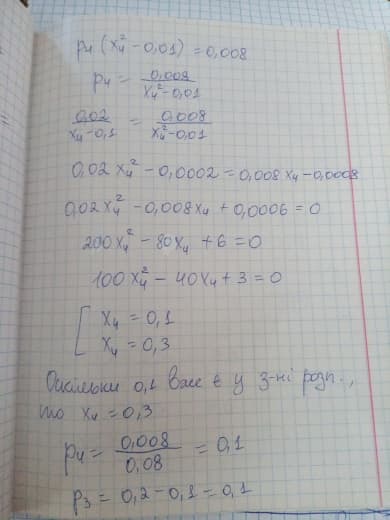 p₄ (x₄² – 0,01) = 0,008
p₄ = 0,008 / x₄² – 0,01
0,02 / x₄ – 0,1 = 0,008 / x₄² – 0,01
0,02 x₄² – 0,0002 = 0,008 x₄ – 0,0008
0,02 x₄² – 0,008 x₄ + 0,0006 = 0
200 x₄² – 80 x₄ + 6 = 0
100 x₄² – 40 x₄ + 3 = 0
[ x₄ = 0,1
x₄ = 0,3
Оскільки 0,1 вже є у з-ні розп.,
то x₄ = 0,3
p₄ = 0,008 / 0,08 = 0,1
p₃ = 0,2 – 0,1 = 0,1